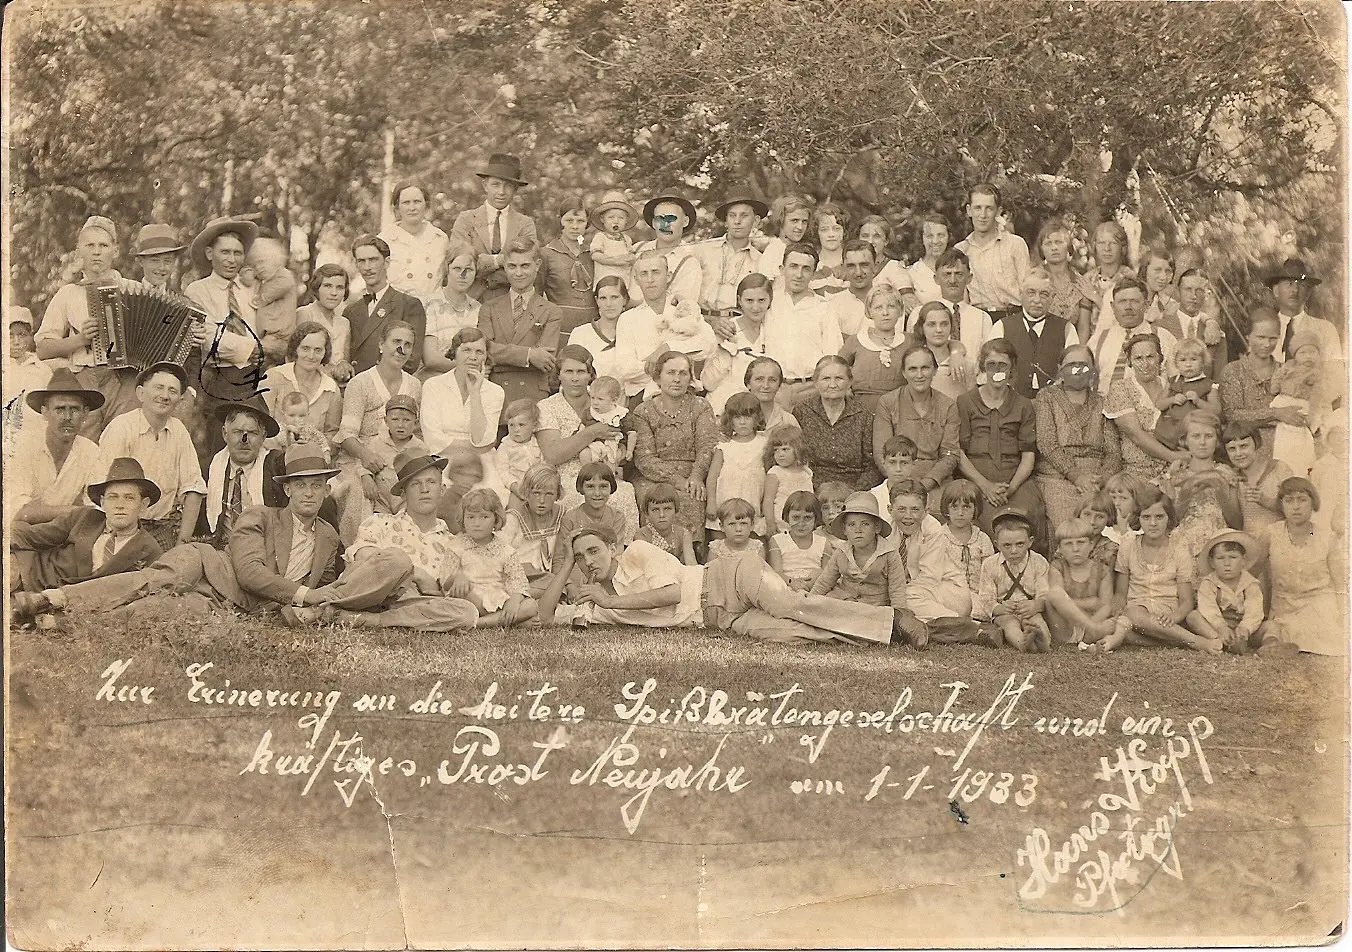 Zur Erinerung an die heitere Spißbrätengeselschaft und ein
kräftiges „Prost Neujahr" am 1-1-1933
Hans Kopp